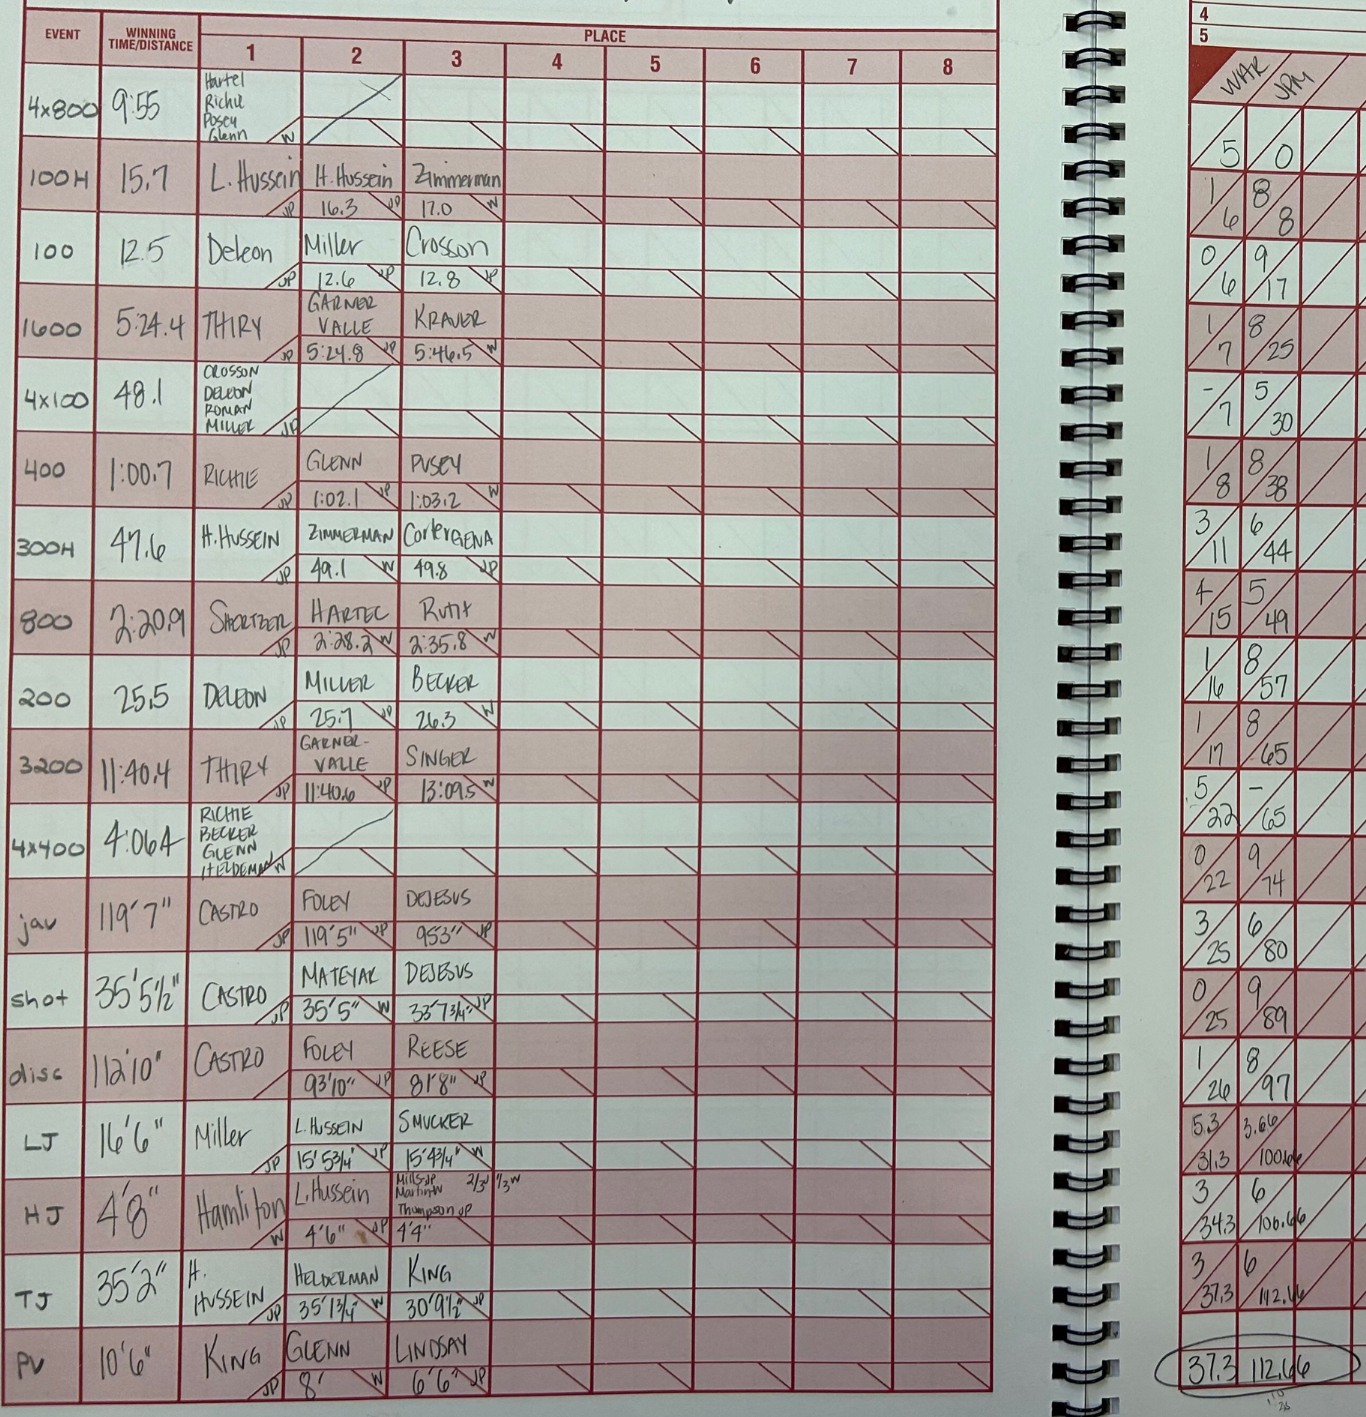 EVENT WINNING TIME/DISTANCE PLACE
1 2 3 4 5 6 7 8
4x800 9:55 Hartel
Richie
Posey
Glenn W
100H 15.7 L. Hussein H. Hussein Zimmerman
JP 16.3 JP 17.0 W
100 12.5 Deleon Miller Crosson
JP 12.6 JP 12.8 JP
1600 5:24.4 THIRY GARNER VALLE KRAVER
JP 5:24.8 JP 5:46.5 W
4x100 48.1 CROSSON
DELEON
ROMAN
MILLER JP
400 1:00.7 RICHIE GLENN POSEY
JP 1:02.1 JP 1:03.2 W
300H 47.6 H. HUSSEIN ZIMMERMAN CorterGENA
JP 49.1 W 49.8 JP
800 2:20.9 SHORTZER HARTEL RUTH
JP 2:28.2 W 2:35.8 W
200 25.5 DELEON MILLER BECKER
JP 25.7 JP 26.3 W
3200 11:40.4 THIRY GARNER-VALLE SINGER
JP 11:40.6 JP 13:09.5 W
4x400 4:06.4 RICHIE
BECKER
GLENN
HELDEMAN W
jav 119'7" CASTRO FOLEY DEJESUS
JP 119'5" JP 95'3" JP
shot 35'5½" CASTRO MATEYAK DEJESUS
JP 35'5" W 33'7¾" JP
disc 112'10" CASTRO FOLEY REESE
93'10" JP 81'8" JP
LJ 16'6" Miller L. HUSSEIN SMUCKER
JP 15'5¾" JP 15'4¾" W
HJ 4'8" Hamliton L. Hussein Mills JP 2/3 JP 1/3 W
Martin W
Thompson JP
W 4'6" JP 4'4"
TJ 35'2" H. HUSSEIN HELDERMAN KING
JP 35'1¾" W 30'9½" JP
PV 10'6" KING GLENN LINDSAY
JP 8' W 6'6" JP
4
5
WAR JPM
5 0
1 8
6 8
0 9
6 17
1 8
7 25
- 5
7 30
1 8
8 38
3 6
11 44
4 5
15 49
1 8
16 57
1 8
17 65
5 -
22 65
0 9
22 74
3 6
25 80
0 9
25 89
1 8
26 97
5.3 3.66
31.3 100.66
3 6
34.3 106.66
3 6
37.3 112.66
37.3 112.66